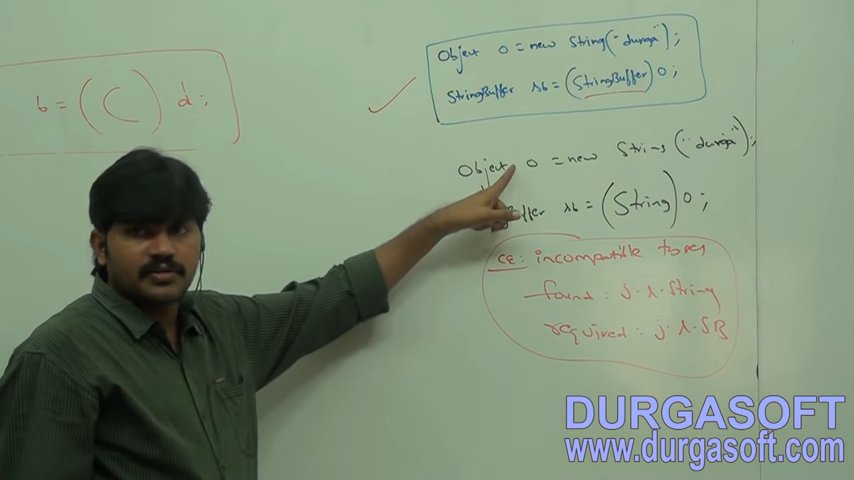 b = (C) d;
Object o = new String("durga");
StringBuffer sb = (StringBuffer) o;
Object o = new String("durga");
Buffer sb = (String) o;
CE: incompatible types
found: j.l.String
required: j.l.SB
DURGASOFT
www.durgasoft.com